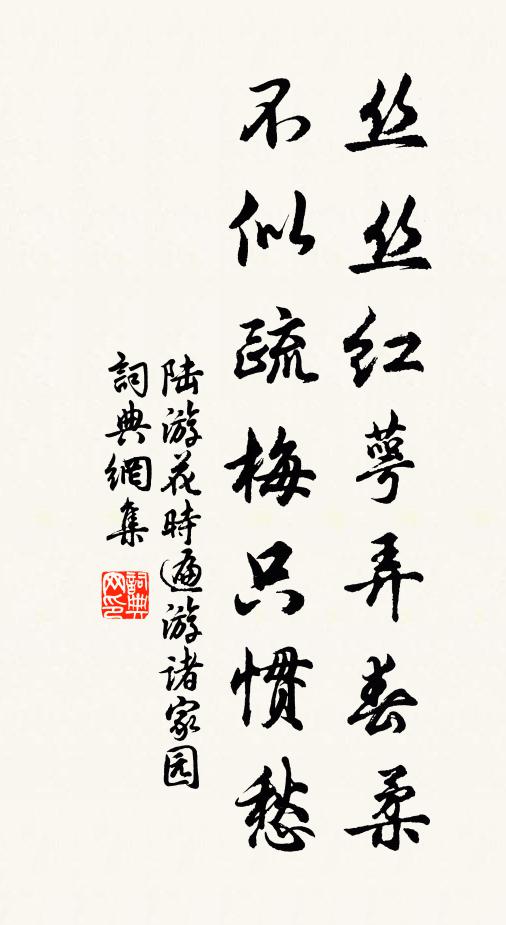 丝丝红萼弄春柔
不似疏梅只惯愁
陆游花時遍游诸家园
詞典網集
詞典网印